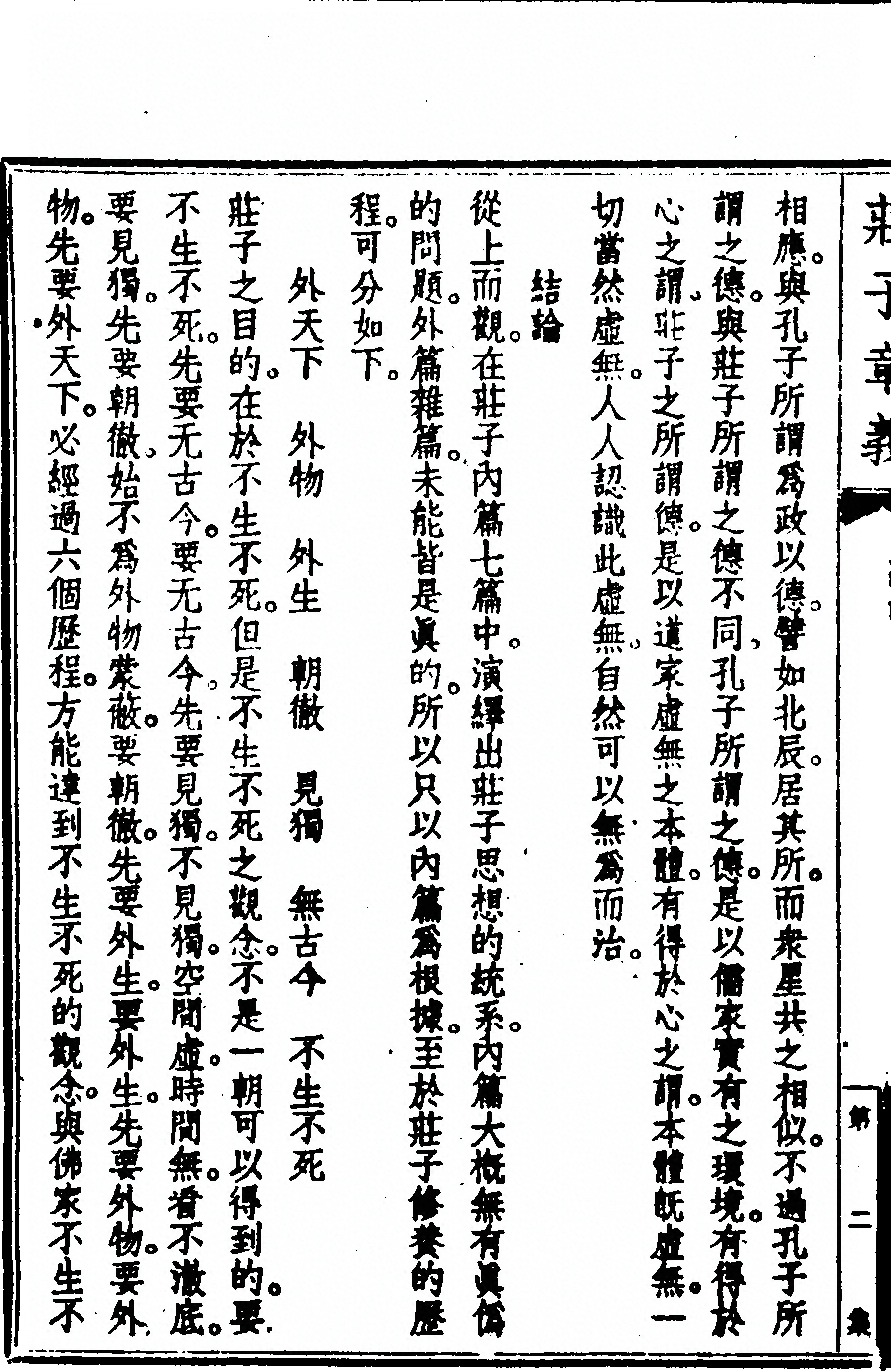 莊子章義
第二集
相應。與孔子所謂為政以德。譬如北辰。居其所。而衆星共之相似。不過孔子所
謂之德。與莊子所謂之德不同。孔子所謂之德。是以儒家實有之環境。有得於
心之謂。莊子之所謂德。是以道家虛無之本體。有得於心之謂。本體既虛無。一
切當然虛無。人人認識此虛無。自然可以無為而治。
結論
從上而觀。在莊子內篇七篇中。演繹出莊子思想的統系。內篇大概無有眞僞
的問題。外篇雜篇。未能皆是眞的。所以只以內篇為根據。至於莊子修養的歷
程。可分如下。
外天下 外物 外生 朝徹 見獨 無古今 不生不死
莊子之目的。在於不生不死。但是不生不死之觀念。不是一朝可以得到的。要
不生不死。先要无古今。要无古今。先要見獨。不見獨。空間虛。時間無。看不澈底。
要見獨。先要朝徹。始不為外物蒙蔽。要朝徹。先要外生。要外生。先要外物。要外
物。先要外天下。必經過六個歷程。方能達到不生不死的觀念。與佛家不生不